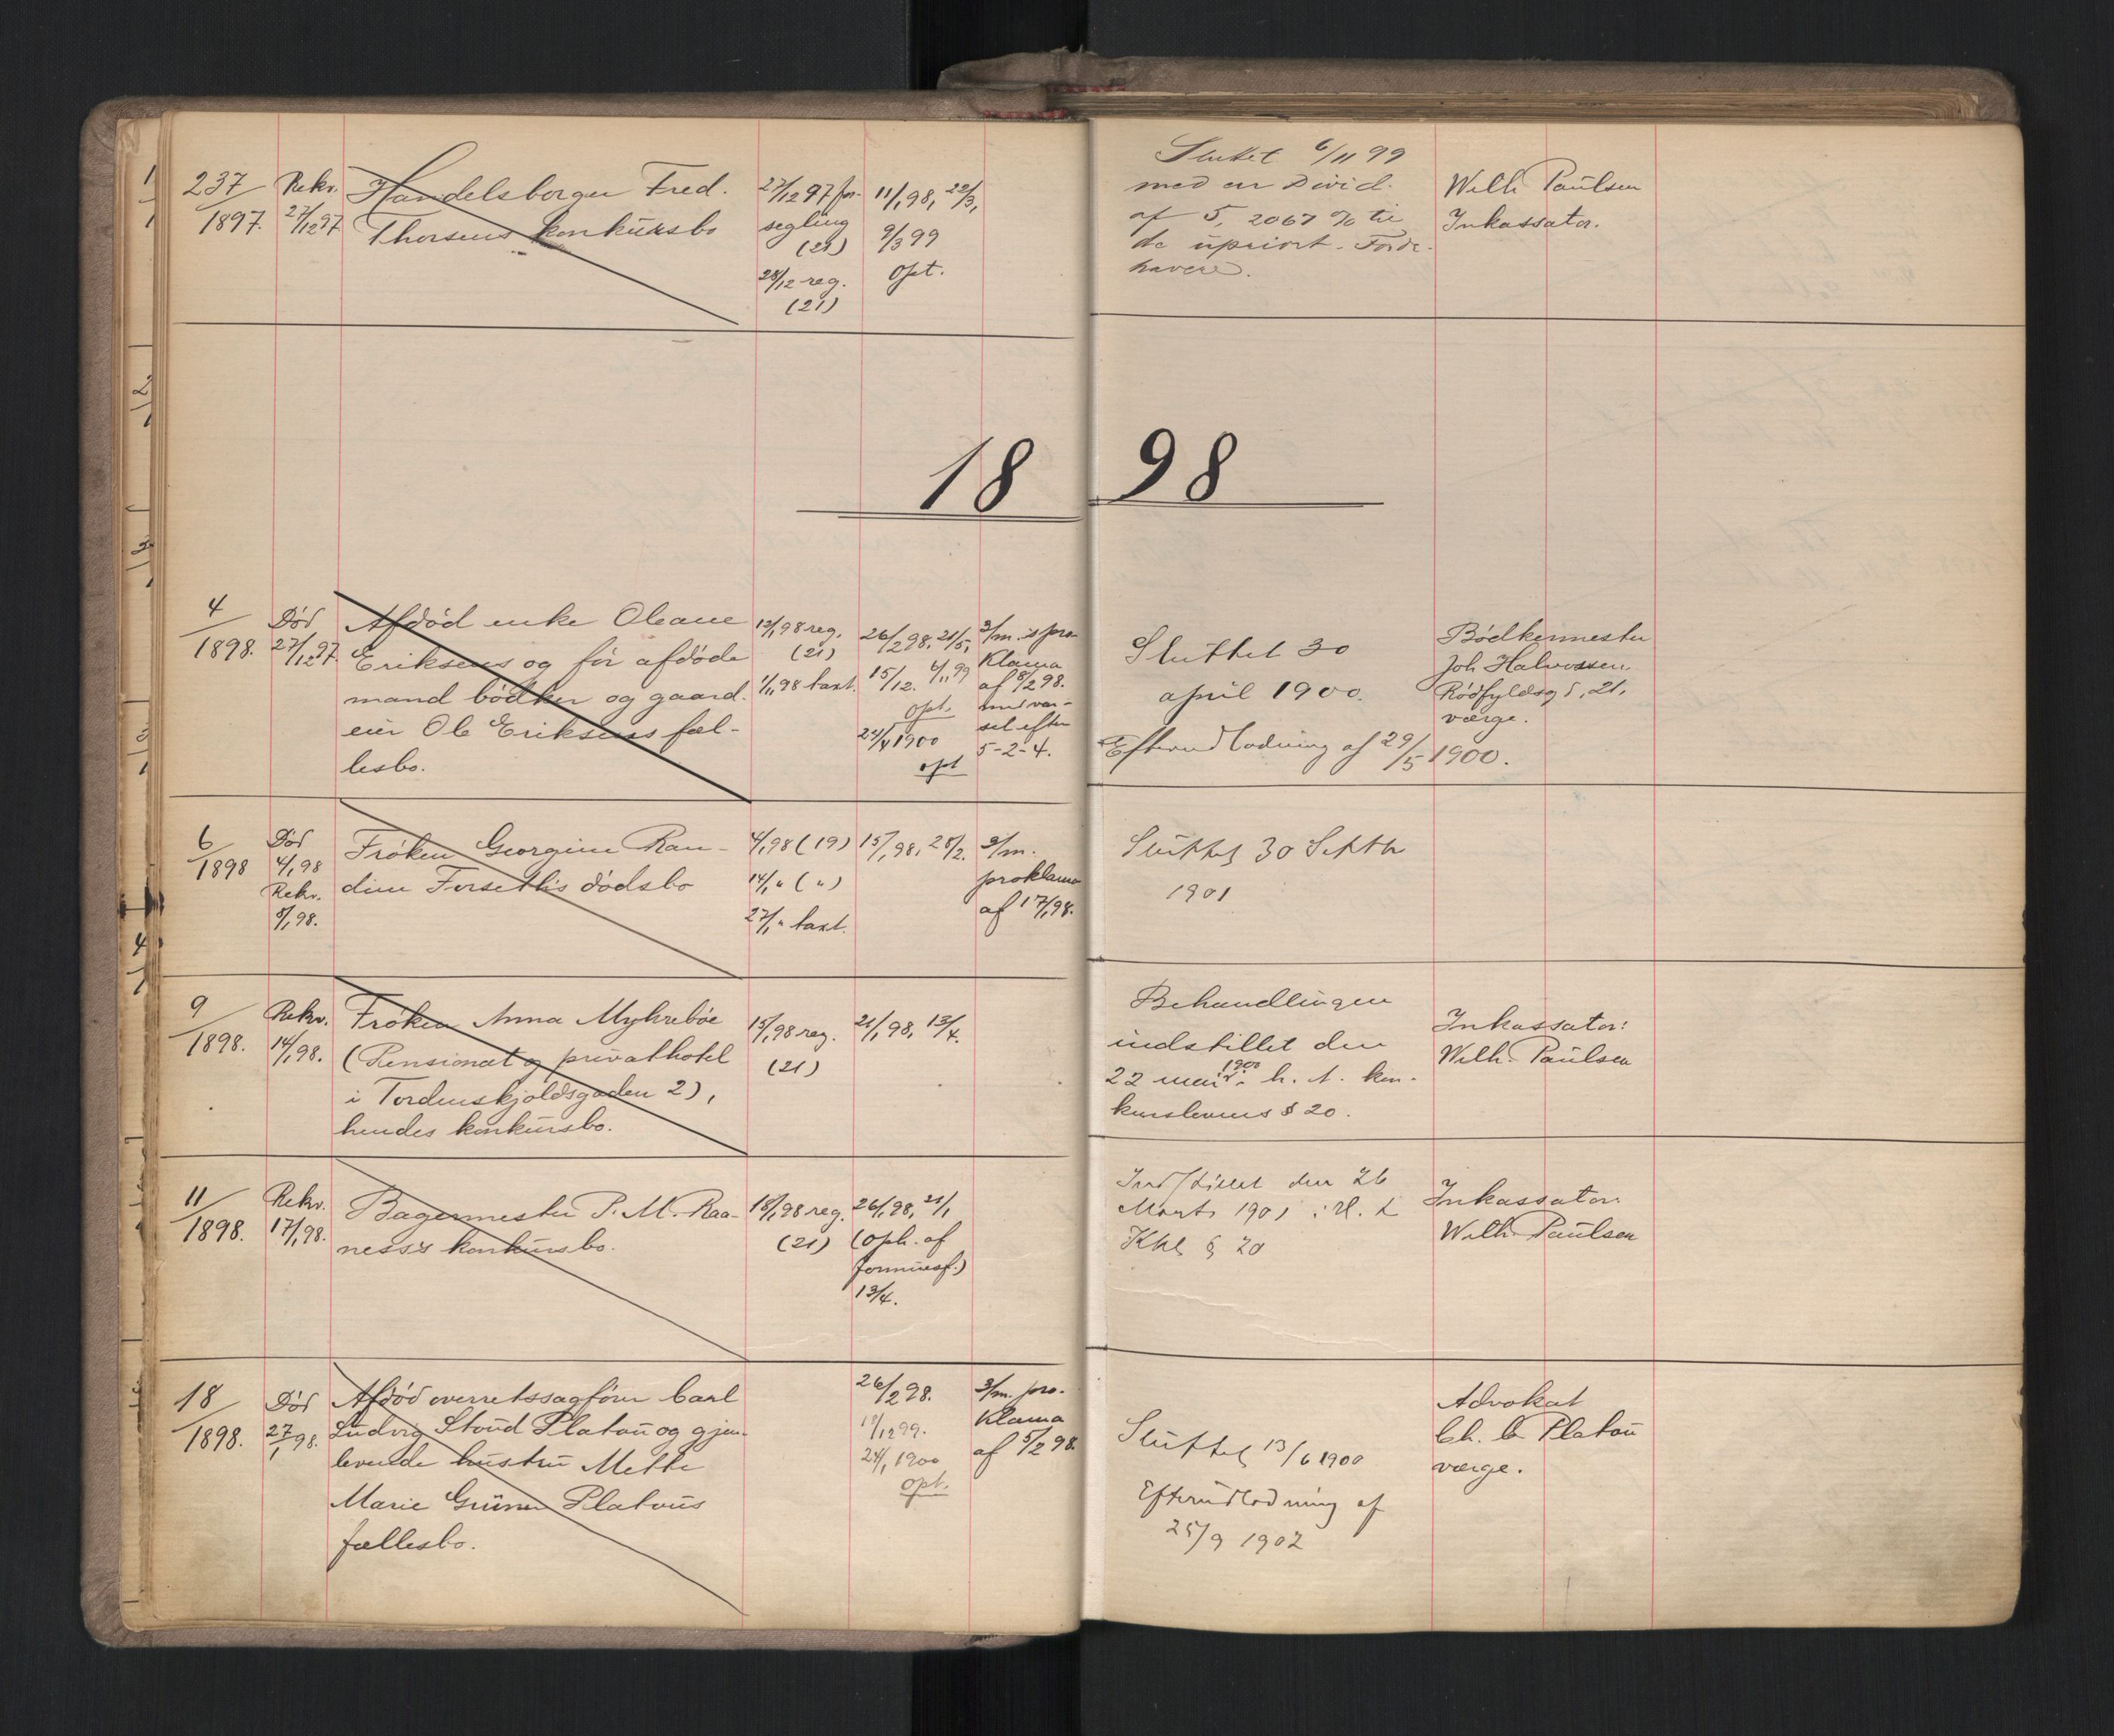 237/1897.
Rekv.
27/12 97
Handelsborger Fred.
Thorsens konkursbo
27/12 97 for-
segling
(21)
28/12 reg.
(21)
11/1 98, 22/3,
9/3 99
Opt.
Sluttet 6/11 99
med en Divid.
af 5, 2067 % til
de upriort. Fordr.
havere.
Wilh Paulsen
Inkassator.
18 98
4/1898.
Död
27/12 97.
Afdöd enke Oleane
Eriksens og för afdöde
mand bödker og gaard.
eier Ole Eriksens fæl-
lesbo.
12/1 98 reg.
(21)
1/11 98 taxt.
26/2 98, 21/5,
15/12. 4/11 99
opt.
24/4 1900
opt
3/m. s pro-
klama
af 8/2 98.
med var-
sel efter
5-2-4.
Sluttet 30
april 1900.
Efterudlodning af 29/5 1900.
Bödkermester
Joh. Halvorssen
Rödfyldsg 5, 21,
værge.
6/1898
Död
4/1 98
Rekv.
5/1 98.
Fröken Georgine Ran-
dine Forseths dödsbo
4/1 98 (19)
14/1 " ( " )
27/1 " taxt.
15/1 98, 28/2.
3/m.
proklama
af 17/1 98.
Sluttet 30 Septb
1901
9/1898.
Rekv.
14/1 98.
Fröken Anna Myhrebøe
(Pensionat og privathotel
i Tordenskjoldsgaden 2),
hendes konkursbo.
15/1 98 reg.
(21)
21/1 98, 13/4.
Behandlingen
indstillet den
1900
22 mai h. t. kon-
kurslovens § 20.
Inkassator:
Wilh. Paulsen
11/1898.
Rekv.
17/1 98.
Bagermester P. M. Raa-
ness's konkursbo.
18/1 98 reg.
(21)
26/1 98, 21/1
(oph. af
formuesf.)
13/4.
Indstillet den 26
Marts 1901 i H. t.
Kkl § 20
Inkassator
Wilh. Paulsen
18/1898.
Död
27/1 98.
Afdöd overretssagförer Carl
Ludvig Stoud Platou og gjen-
levende hustru Mette
Marie Grüner Platous
fællesbo.
26/2 98.
19/12 99.
24/1 1900
opt.
3/m. pro-
klama
af 5/2 98.
Sluttet 13/6 1900
Efterudlodning af
25/9 1902
Advokat
Ch. C. Platou
værge.